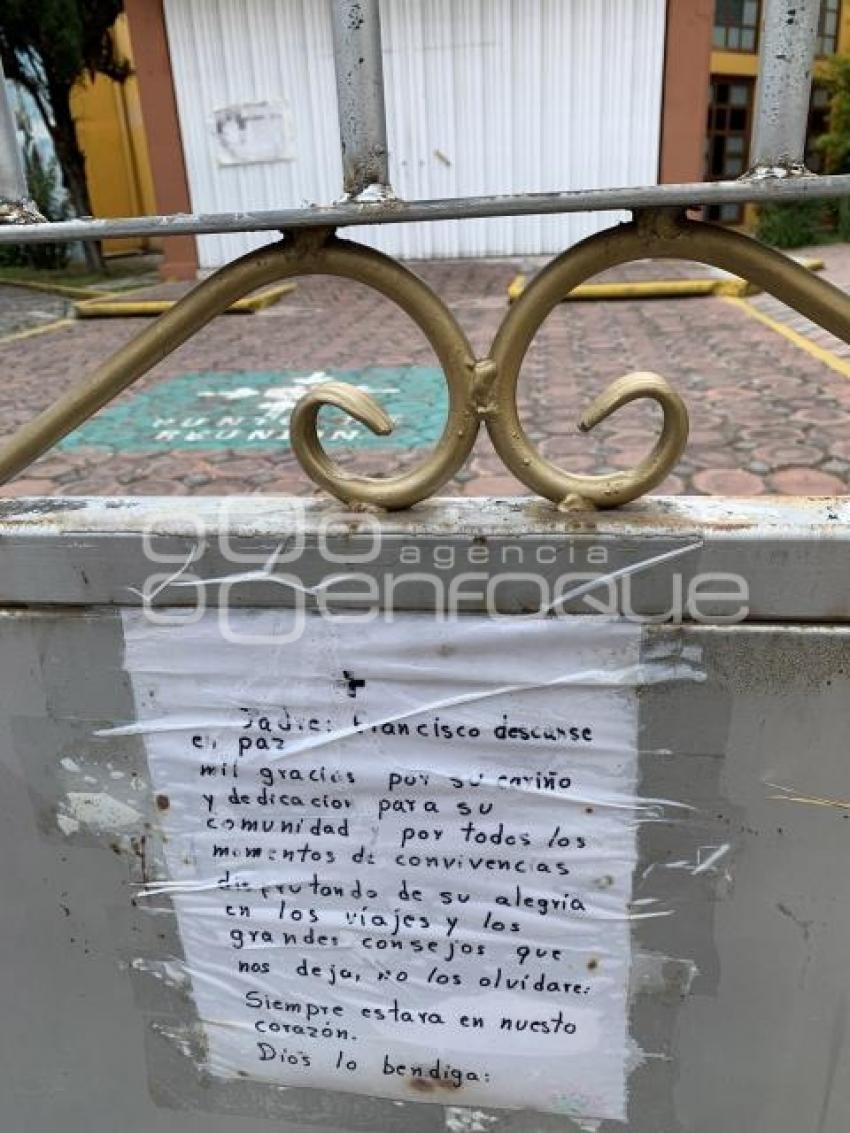 PUNTO DE
REUNIÓN
agencia
enfoque
Padre: Francisco descanse
en paz
mil gracias por su cariño
y dedicacion para su
comunidad y por todos los
momentos de convivencias
disfrutando de su alegria
en los viajes y los
grandes consejos que
nos deja, no los olvidare:
Siempre estara en nuesto
corazón.
Dios lo bendiga: